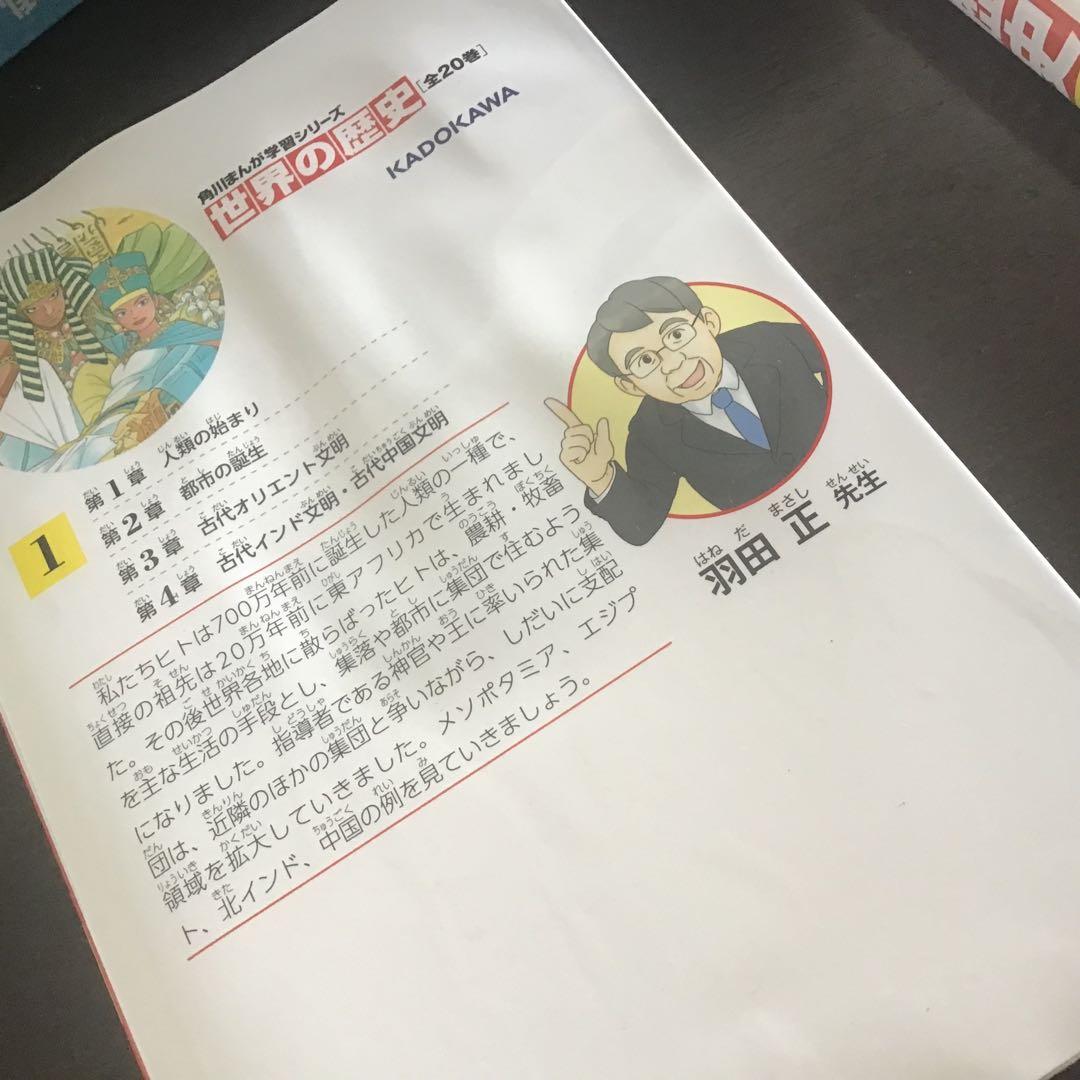 角川まんが学習シリーズ
世界の歴史[全20巻]
KADOKAWA
1
第1章 人類の始まり
第2章 都市の誕生
第3章 古代オリエント文明
第4章 古代インド文明・古代中国文明
私たちヒトは700万年前に誕生した人類の一種で、
直接の祖先は20万年前に東アフリカで生まれまし
た。その後世界各地に散らばったヒトは、農耕・牧畜
を主な生活の手段とし、集落や都市に集団で住むよう
になりました。指導者である神官や王に率いられた集
団は、近隣のほかの集団と争いながら、しだいに支配
領域を拡大していきました。メソポタミア、エジプ
ト、北インド、中国の例を見ていきましょう。
羽田 正 先生